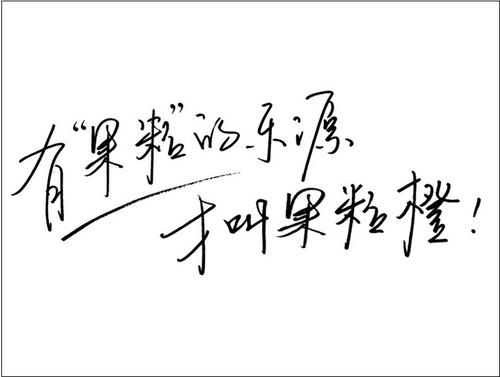 有“果粒”的乐源
才叫果粒橙！